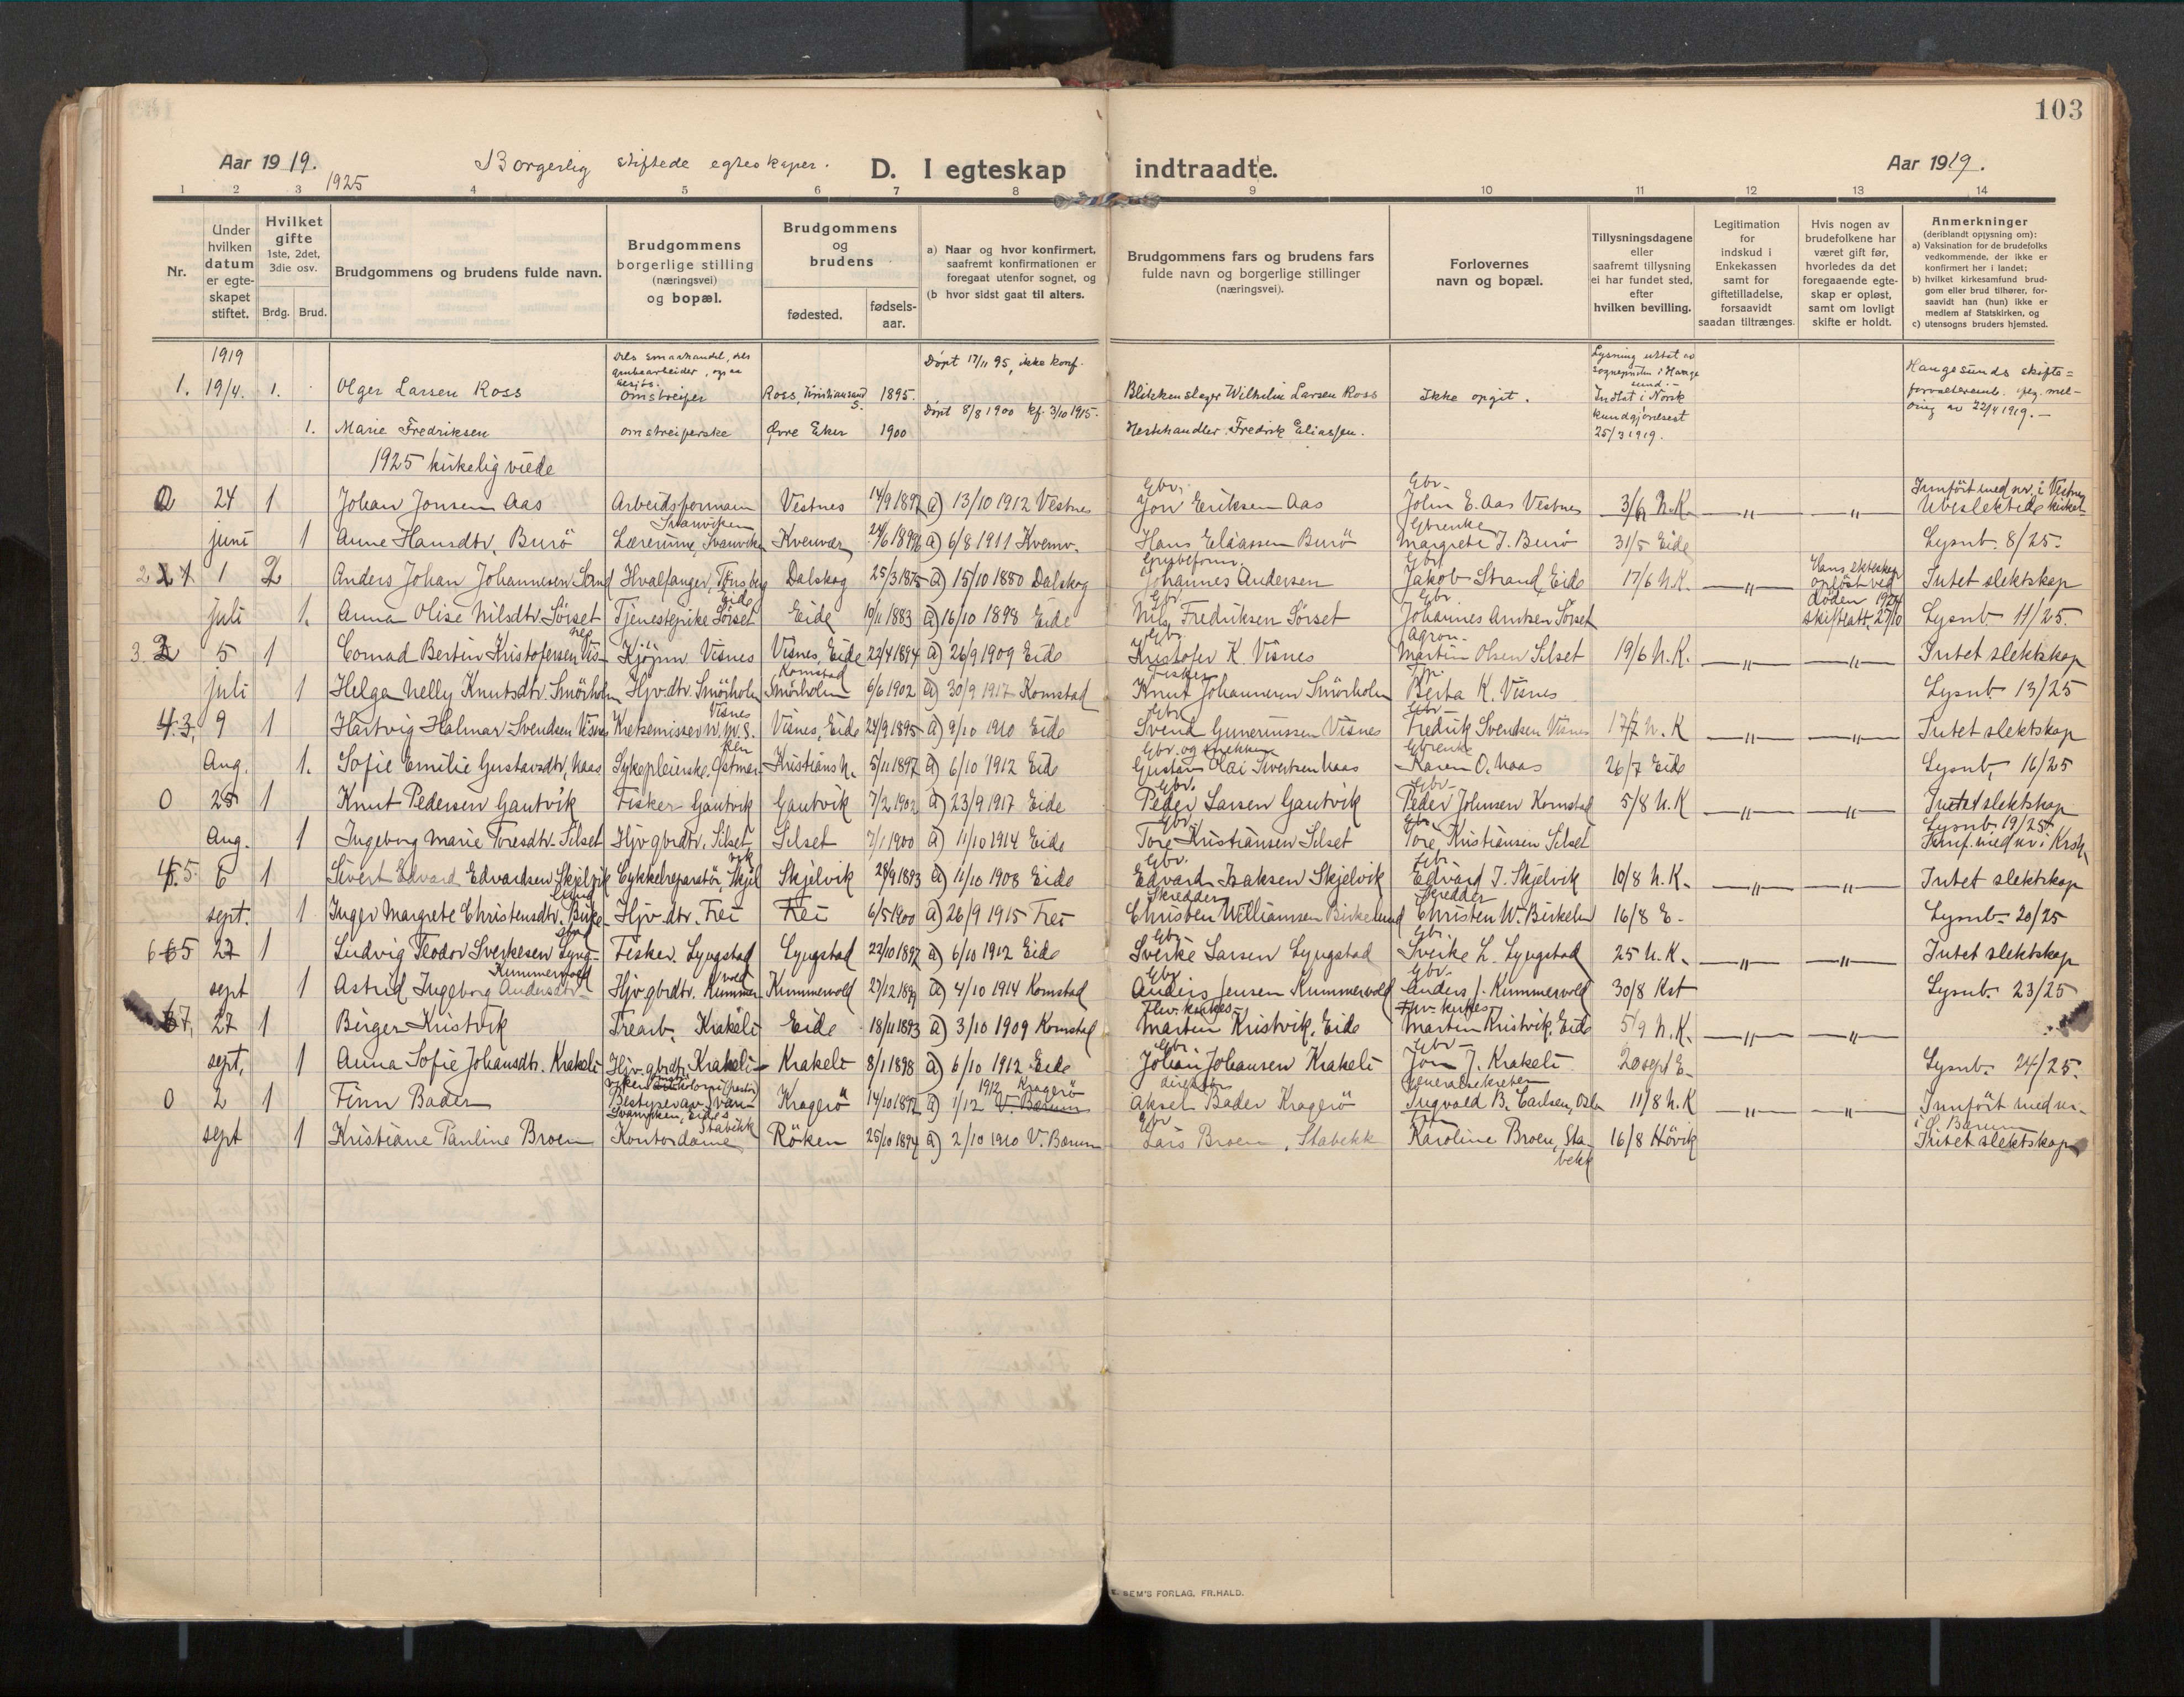 103
Aar 1919. Borgerlig stiftede egteskaper. D. I egteskap indtraadte. Aar 1919.
1925
1 2 3 4 5 6 7 8 9 10 11 12 13 14
Nr.
Under hvilken datum er egte-skapet stiftet.
Hvilket gifte 1ste, 2det, 3die osv.
Brdg. Brud.
Brudgommens og brudens fulde navn.
Brudgommens borgerlige stilling (næringsvei) og bopæl.
Brudgommens og brudens
fødested. fødsels-aar.
a) Naar og hvor konfirmert, saafremt konfirmationen er foregaat utenfor sognet, og
(b hvor sidst gaat til alters.
Brudgommens fars og brudens fars fulde navn og borgerlige stillinger (næringsvei).
Forlovernes navn og bopæl.
Tillysningsdagene eller saafremt tillysning ei har fundet sted, efter hvilken bevilling.
Legitimation for indskud i Enkekassen samt for giftetilladelse, forsaavidt saadan tiltrænges.
Hvis nogen av brudefolkene har været gift før, hvorledes da det foregaaende egte-skap er opløst, samt om lovligt skifte er holdt.
Anmerkninger (deriblandt oplysning om):
a) Vaksination for de brudefolks vedkommende, der ikke er konfirmert her i landet;
b) hvilket kirkesamfund brud-gom eller brud tilhører, for-saavidt han (hun) ikke er medlem af Statskirken, og
c) utensogns bruders hjemsted.
1919
1. 19/4. 1. Olger Larsen Ross omstreifer Ross, Kristiansand S. 1895. Døpt 17/11 95, ikke konf. Blikkenslager Wilhelm Larsen Ross Ikke opgit. Lysning uttat av sogneprsten i Hauge sund.- Indtat i Norsk kundgjørelsest 25/3 1919. Haugesunds skifte= 22/4 1919.-
1. Marie Fredriksen omstreiferske Øvre Eker 1900 Døpt 8/8 1900 kf. 3/10 1915. Hestehandler Fredrik Eliassen.
1925 kirkelig viede
0 24 1 Johan Jonsen Aas Arbeidsformann Svanviken Vestnes 14/9 1897 a) 13/10 1912 Vestnes Gbr. Jon Eriksen Aas Gbr. John E. Aas Vestnes 3/6 N.K. —"— —"— Innført med nr. i Vestnes
juni 1 Anne Hansdtr. Burö Lærerinne, Svanviken Kvenvær a) 6/8 1911 Kvenv. Hans Eliassen Burö Gbrenke Margrete J. Burö 31/5 Eide Lysnb. 8/25.
1 2 Anders Johan Johannesen Sand Hvalfanger, Tønsberg Dalskog 25/3 1875 a) 15/10 1880 Dalskog Johannes Andersen Jakob Strand, Eide 17/6 N.K. —"— Hans ekteskap opløst ved døden 1924 skifteatt. 27/10 Intet slektskap
juli 1. Anna Olise Nilsdtr. Sørset Tjenestepike Sørset Eide Eide 10/11 1883 a) 16/10 1898 Eide Gbr. Nils Fredriksen Sörset Gbr Johannes Arntsen Sörset Lysnb. 11/25.
3. 5 1 Conrad Bertin Kristofersen Vis-nes Kjöpm Visnes Visnes, Eide 22/4 1894 a) 26/9 1909 Eide Gbr. Kristofer K. Visnes Agron. Martin Olsen Silset 19/6 N.K. —"— —"— Intet slektskap
juli 1 Helga Nelly Knutsdtr. Smörholm Hjv. dtr. Smörholm Komstad Smörholm 6/6 1902 a) 30/9 1917 Komstad Fisker Knut Johannesen Smörholm Berta K. Visnes Lysnb. 13/25
4. 9 1 Hartvig Halmar Svendsen Visnes Kretsemissær N.M.S. Visnes Visnes, Eide 24/9 1895 a) 9/10 1910 Eide Gbr. Svend Gunerussen Visnes Gbr. Fredrik Svendsen Visnes 17/7 N.K —"— —"— Intet slektskap
Aug. 1. Sofie Emilie Gustavsdtr. Naas Sykepleierske. Kristians N. 5/11 1897 a) 6/10 1912 Eide Gbr. og snekker Gustav Olai Sivertsen Naas Gbrenke Karen O. Naas 26/7 Eide Lysnb. 16/25
0 25 1 Knut Pedersen Gautvik Fisker Gautvik Gautvik 7/2 1902 a) 23/9 1917 Eide Gbr. Peder Larsen Gautvik Gbr. Peder Johnsen Komstad 5/8 N.K —"— —"— Intet slektskap
Aug. 1 Ingeborg Marie Toresdtr. Silset Hjv. gbrdtr. Silset Silset 7/1 1900 a) 11/10 1914 Eide Gbr. Tore Kristiansen Silset Gbr. Tore Kristiansen Silset Lysnb. 19/25
5. 6 1 Sivert Edvard Edvardsen Skjelvik Cykkelreparatör, Skjelvik Skjelvik 28/9 1893 a) 11/10 1908 Eide Gbr. Edvard Isaksen Skjelvik Gbr. Edvard I. Skjelvik 10/8 N.K. —"— —"— Intet slektskap
sept. 1 Inger Margrete Christensdtr. Birke-lund Hjv. dtr. Frei Frei 6/5 1900 a) 26/9 1915 Frei Skredder Christen Williamsen Birkelund Skredder Christen W. Birkelun 16/8 E. Lysnb. 20/25
6 27 1 Ludvig Teodor Sverkesen Lyng-stad Fisker. Lyngstad Lyngstad 22/10 1897 a) 6/10 1912 Eide Gbr. Sverke Larsen Lyngstad Gbr. Sverke L. Lyngstad 25 N.K. —"— —"— Intet slektskap
sept 1 Astrid Ingeborg Andersdtr. Kummervold Hjv. gbrdtr. Kummer-vold Kummervold 27/12 1899 a) 4/10 1914 Komstad Gbr Anders Jensen Kummervold Gbr. Anders J. Kummervold 30/8 Kst Lysnb. 23/25
7, 27 1 Birger Kristvik Trearb. Krakeli Eide 18/11 1893 a) 3/10 1909 Komstad Martin Kristvik, Eide Martin Kristvik, Eide 5/9 N.K. —"— —"—
sept, 1 Anna Sofie Johansdtr. Krakeli Hjv. gbrdtr. Krakeli Krakeli 8/1 1898 a) 6/10 1912 Eide Gbr. Johan Johansen Krakeli Gbr. Jon J. Krakeli 20 sept E. Lysnb. 24/25.
0 2 1 Finn Bader Bestyrer av Svan-viken Kragerö 14/10 1897 a) 1/12 1912 Kragerö V. Bærum direktör Aksel Bader Kragerö Generalsekretær Ingvald B. Carlsen, Oslo 11/8 N.K —"— —"— Innført med nr. i Ö. Bærum
sept 1 Kristiane Pauline Broen Kontordame Stabekk Röken 25/10 1894 a) 2/10 1910 V. Bærum Gbr Lars Broen, Stabekk Karoline Broen, Sta-bekk 16/8 Hövik Intet slektskap
E. SEM'S FORLAG, FR.HALD.